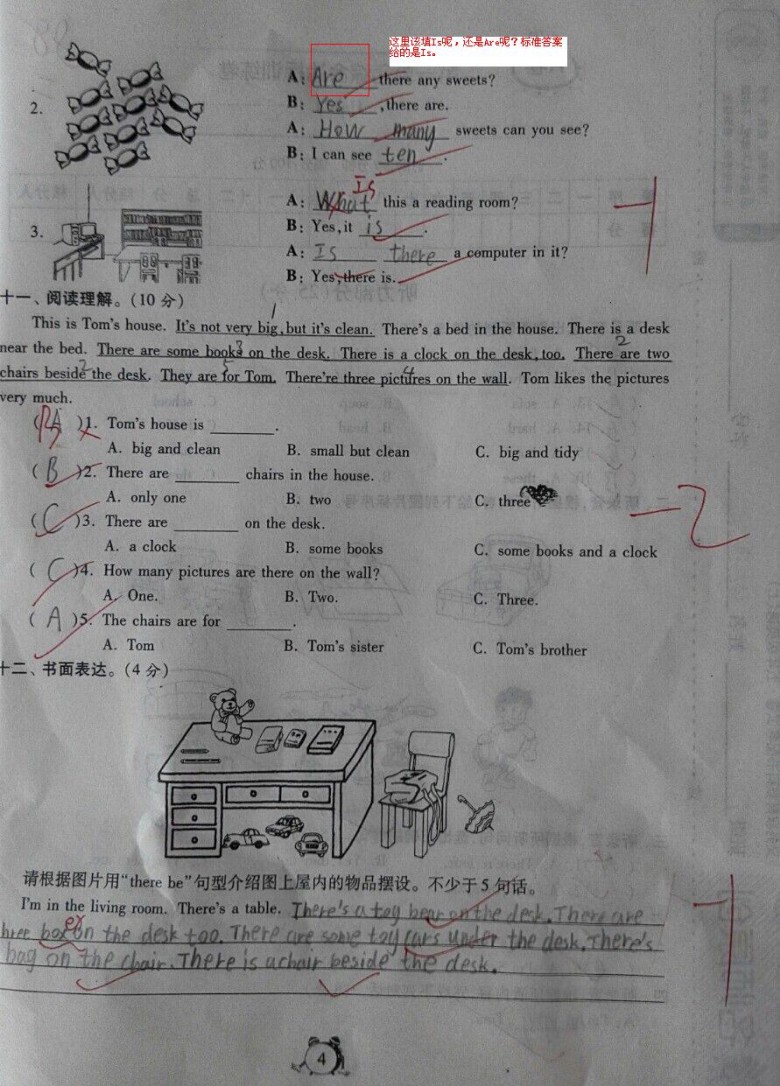 这里该填Is呢，还是Are呢？标准答案
给的是Is。
2.
A: Are there any sweets?
B: Yes, there are.
A: How many sweets can you see?
B: I can see ten.
3.
Is
A: What this a reading room?
B: Yes, it is.
A: Is there a computer in it?
B: Yes, there is.
-1
十一、阅读理解。(10 分)
This is Tom's house. It's not very big, but it's clean. There's a bed in the house. There is a desk
near the bed. There are some books on the desk. There is a clock on the desk, too. There are two
chairs beside the desk. They are for Tom. There're three pictures on the wall. Tom likes the pictures
very much.
( A )1. Tom's house is ________.
A. big and clean B. small but clean C. big and tidy
( B )2. There are ________ chairs in the house.
A. only one B. two C. three
-2
( C )3. There are ________ on the desk.
A. a clock B. some books C. some books and a clock
( C )4. How many pictures are there on the wall?
A. One. B. Two. C. Three.
( A )5. The chairs are for ________.
A. Tom B. Tom's sister C. Tom's brother
十二、书面表达。(4 分)
请根据图片用“there be”句型介绍图上屋内的物品摆设。不少于5句话。
I'm in the living room. There's a table. There's a toy bear on the desk. There are
hree box on the desk too. There are some toy cars under the desk. There's
bag on the chair. There is a chair beside the desk.
-1
4